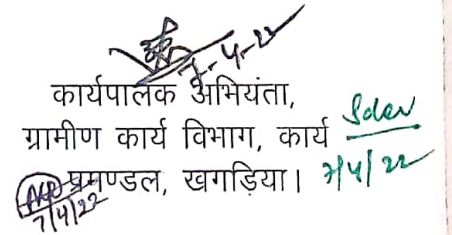 7-4-22
कार्यपालक अभियंता,
ग्रामीण कार्य विभाग, कार्य
प्रमण्डल, खगड़िया। 7/4/22
7/4/22